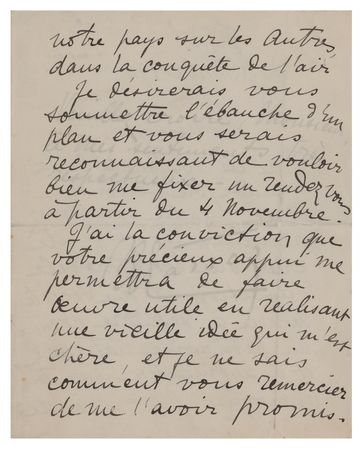 notre pays sur les autres
dans la conquête de l'air
Je désirerais vous
soumettre l'ébauche d'un
plan et vous serais
reconnaissant de vouloir
bien me fixer un rendez vous
à partir du 4 Novembre.
J'ai la conviction que
votre précieux appui me
permettra de faire
œuvre utile en realisant
une vieille idée qui m'est
chère, et je ne sais
comment vous remercier
de me l'avoir promis.